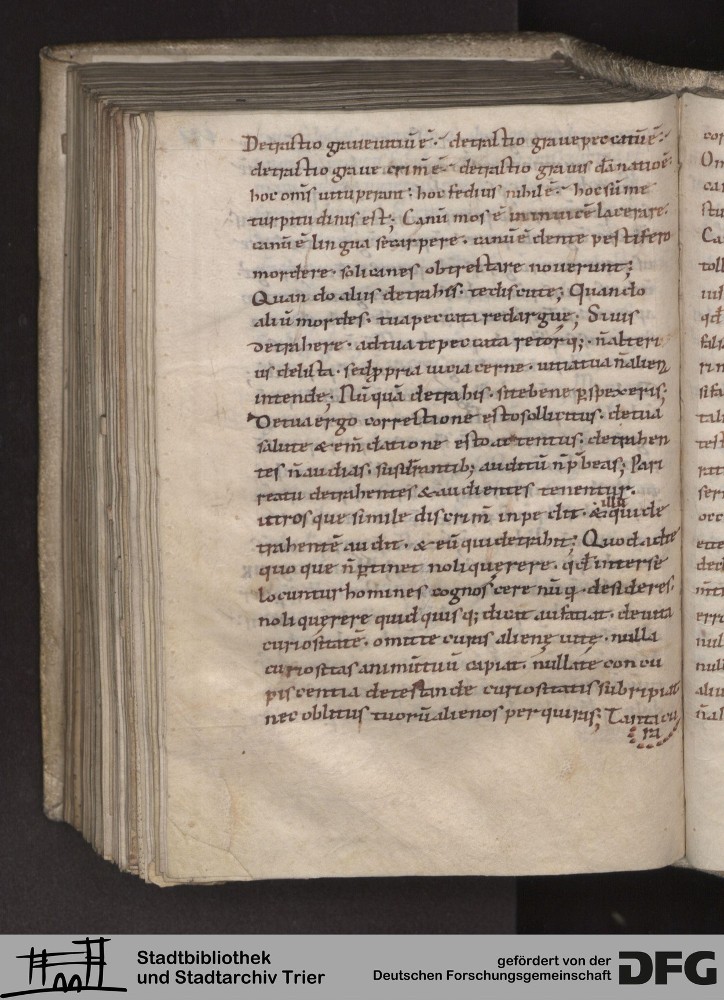 Detractio graue uitiū ē· detractio graue peccatū ē·
detractio graue crim̄ ē· detractio grauis dānatio ē·
hoc om̄s uituperant· hoc fedius nihil ē· hoc sūme
turpitudinis est; Canū mos ē in inuicē lacerare·
canū ē lingua secarpere· canū ē dente pestifero
mordere· soli canes obtrectare nouerunt;
Quando aliis detrahis· te discute; Quando
aliū mordes· tua peccata redargue; Si uis
detrahere· ad tua te peccata retorq;· n̄ alteri
us delicta· sed ꝓpria uicia cerne· uitia tua n̄ alienꝝ
intende; Nūquā detrahis· si te bene ꝑspexeris;
De tua ergo correctione esto sollicitus· de tua
salute & em̄datione esto attentus· detrahen
tes n̄ audias· susurrantib; auditū n̄ p̄beas; Pari
reatu detrahentes & audientes tenentur·
utrosque simile discrim̄ inpedit· & illū qui de
trahentē audit· & eū qui detrahit; Quod ad te
quoque n̄ ꝑtinet noli quęrere· qđ inter se
locuntur homines cognoscere nūq̄ desideres·
noli quęrere quid quisq; dicat aut faciat· deuita
curiositatē· omitte curas alienę uite· nulla
curiositas animū tuū capiat· nulla te concu
piscentia detestande curiositatis subripiat
nec oblitus tuorū alienos perquiras; Tanta cu
ra
Stadtbibliothek
und Stadtarchiv Trier
gefördert von der
Deutschen Forschungsgemeinschaft
DFG